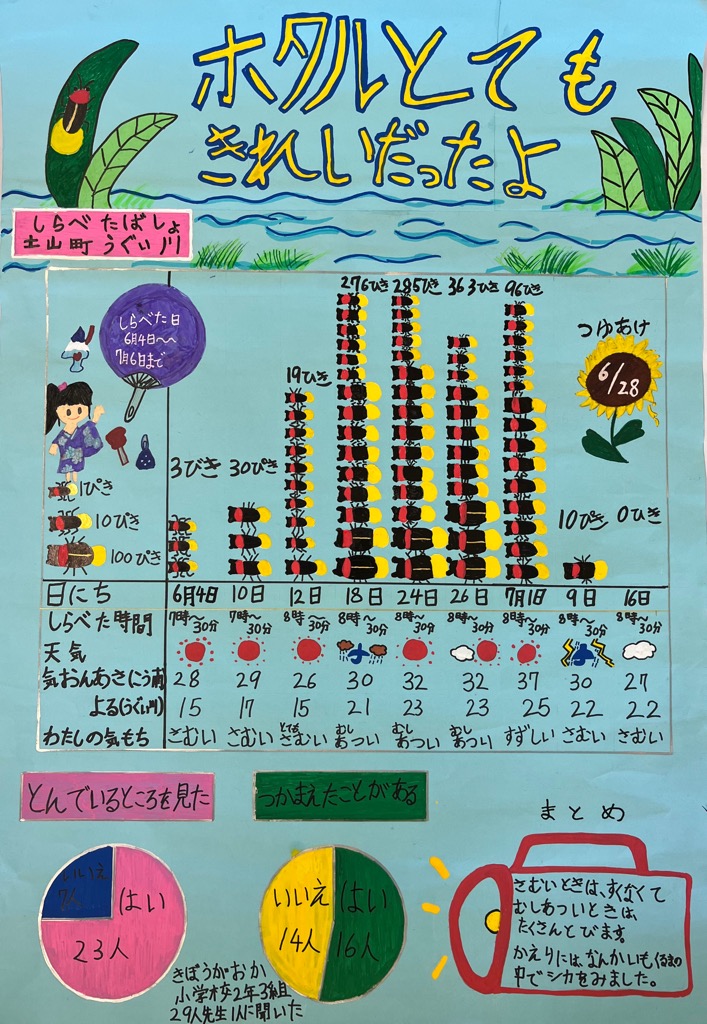 ホタルとても
きれいだったよ
しらべたばしょ
土山町うぐい川
しらべた日
6月4日〜
7月6日まで
276ぴき 285ひき 363ひき 96ぴき
つゆあけ
6/28
19ひき
3びき 30ぴき
1ぴき
10ぴき
100ぴき
10ぴき 0ひき
日にち 6月4日 10日 12日 18日 24日 26日 7月1日 9日 16日
しらべた時間 7時〜30分 7時〜30分 8時〜30分 8時〜30分 8時〜30分 8時〜30分 8時〜30分 8時〜30分 8時〜30分
天気
気おんあさ 28 29 26 30 32 32 37 30 27
よる(うぐい川) 15 17 15 21 23 23 25 22 22
わたしの気もち さむい さむい とてもさむい むしあつい むしあつい むしあつい すずしい さむい さむい
とんでいるところを見た
つかまえたことがある
まとめ
いいえ
7人
はい
23人
いいえ
14人
はい
16人
きぼうがおか
小学校2年3組
29人先生1人に聞いた
さむいときは、すくなくて
むしあついときは、
たくさんとびます。
かえりには、なんかいもくるまの
中でシカをみました。